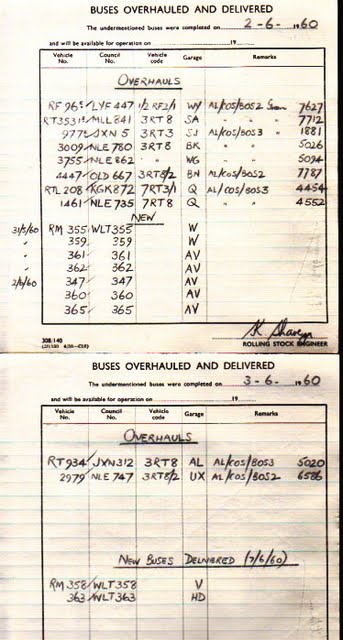 BUSES OVERHAULED AND DELIVERED
The undermentioned buses were completed on 2-6- 1960
and will be available for operation on 19
Vehicle No. Council No. Vehicle code Garage Remarks
OVERHAULS
RF 96 LYF 447 1/2 RF2/1 WY AL/COS/BOS2 7627
RT3531 MLL 841 3RT8 SA " " 7712
977 JXN 5 3RT3 SJ AL/COS/BOS3 " 1881
3009 NLE 780 3RT8 BK " " 5026
3755 NLE 862 " " WG " " 5094
4447 OLD 667 3RT8/2 BN AL/COS/BOS2 7787
RTL 208 KGK 872 7RT3/1 Q AL/COS/BOS3 4454
1461 NLE 735 7RT8 Q " " 4552
NEW
31/5/60 RM 355 WLT355 W
" 359 359 W
" 361 361 AV
" 362 362 AV
2/6/60 347 347 AV
360 360 AV
365 365 AV
308/140
ROLLING STOCK ENGINEER
BUSES OVERHAULED AND DELIVERED
The undermentioned buses were completed on 3-6- 1960
and will be available for operation on 19
Vehicle No. Council No. Vehicle code Garage Remarks
OVERHAULS
RT934 JXN312 3RT8 AL AL/COS/BOS3 5020
2979 NLE 747 3RT8/2 UX AL/COS/BOS2 6586
NEW BUSES DELIVERED (7/6/60)
RM 358 WLT358 V
363 WLT363 HD